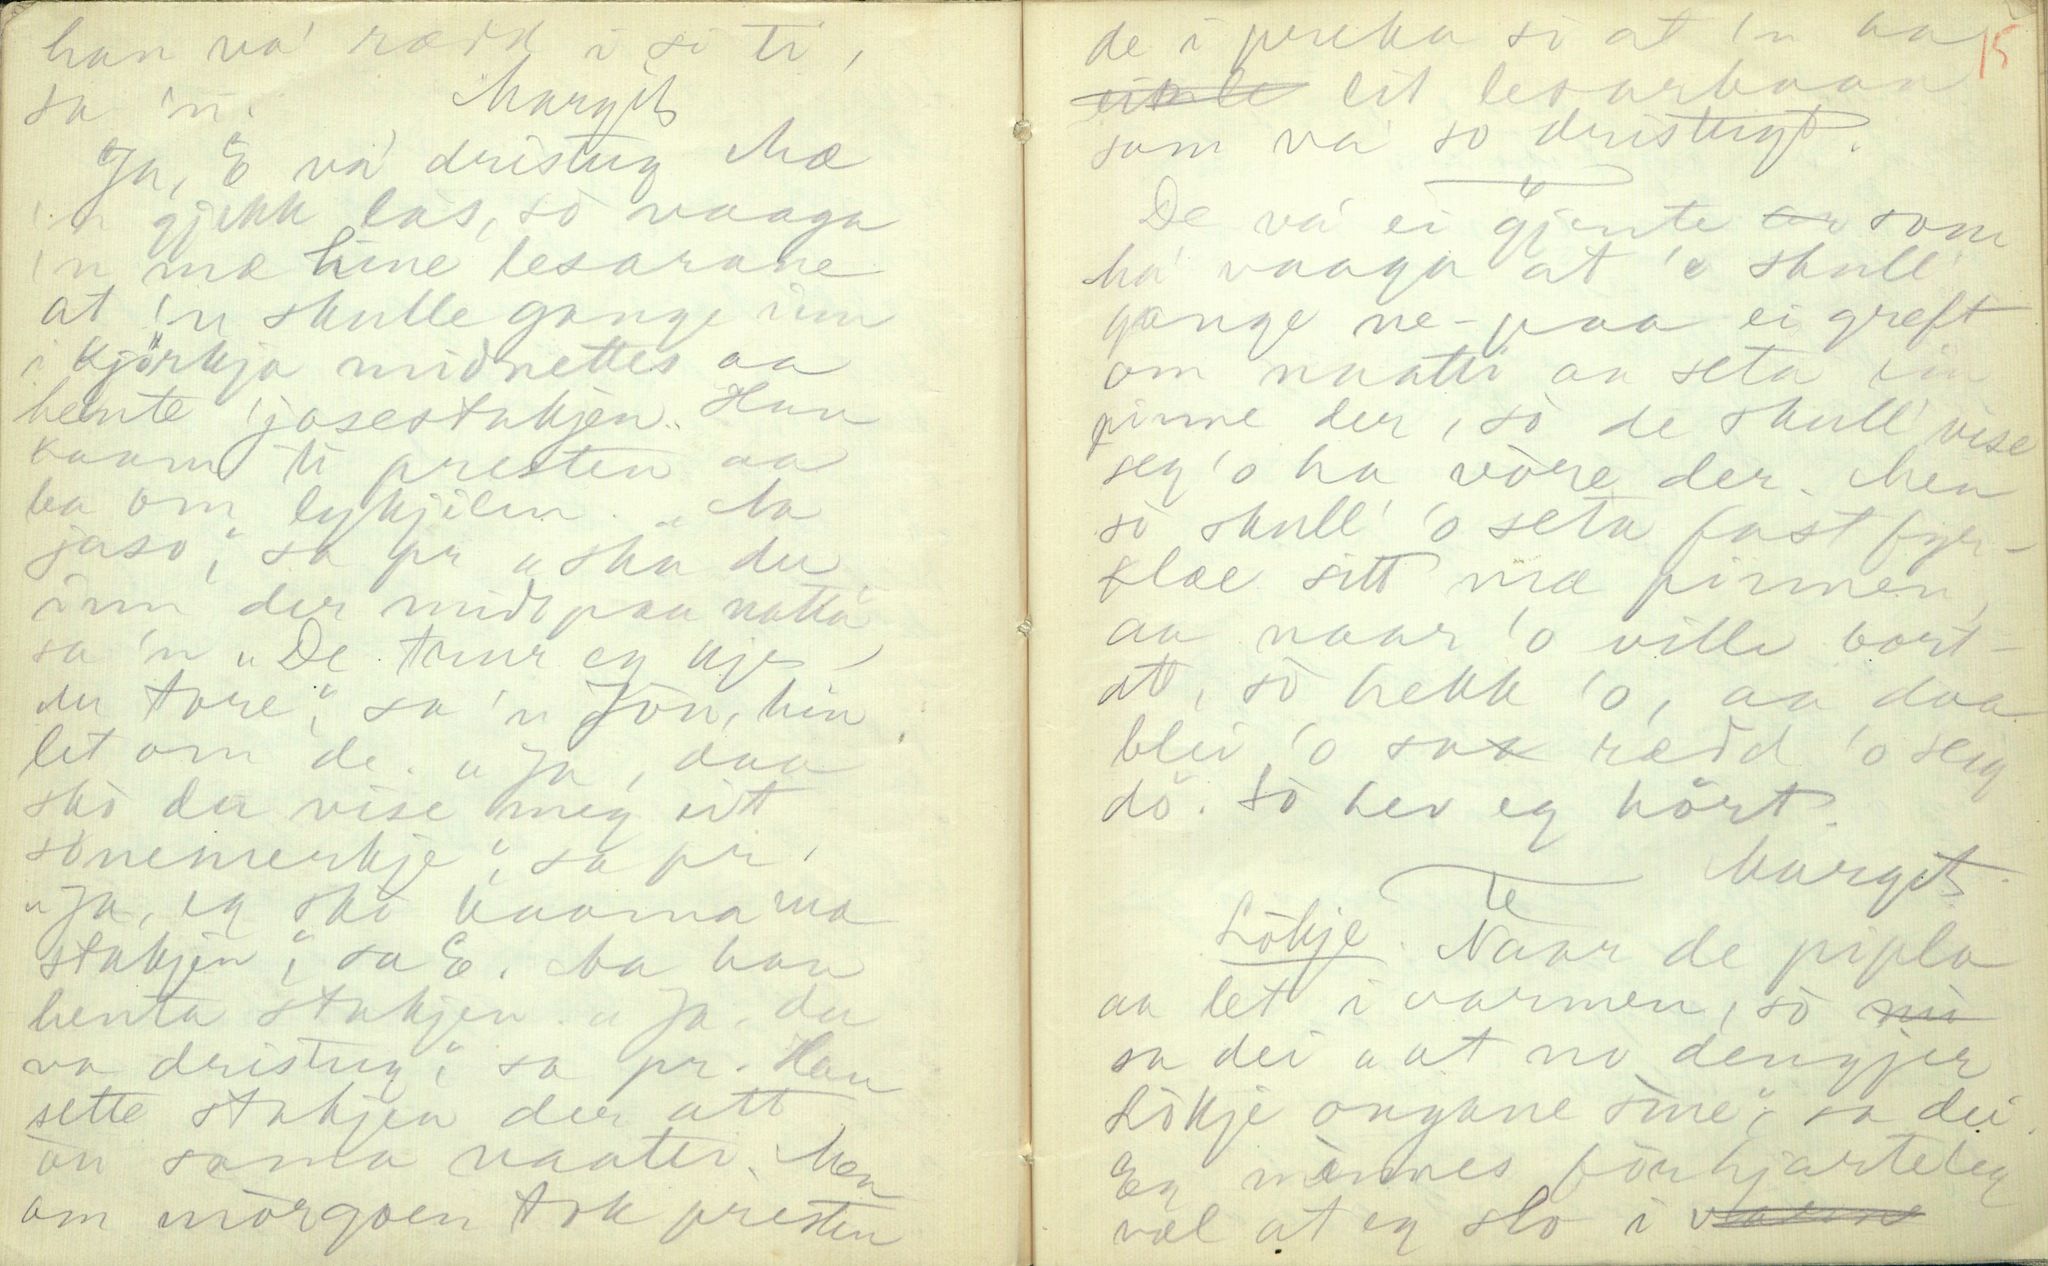 han va' rædd i si ti,
sa 'n. Margit
Ja, E va' dristug Mæ
'n gjekk las, sò vaaga
'n mæ hine lesarane
at 'n skulle gange inn
i kjörkja midnettes aa
hente "josestakjen". Han
kaam ti presten aa
ba om lykjilen. "Na
jaso", sa pr "ska du
inn der midt paa natta"
sa 'n "De truur eg kje
du tore", sa 'n Jòn, hin
let om de. "Ja, daa
skò du vise meg eit
sònemerkje", sa pr.
"Ja, eg skò kaama mæ
stakjen", sa E. Na han
henta stakjen. "Ja, du
va dristug", sa pr. Han
sette stakjen der att
òn sama naatti. Men
om mòrgoen tok presten
de i preka si at 'n ha 15
eit lesarbaan
som va' so dristugt.
De va' ei gjente som
ha' vaaga at 'o skull'
gange ne-paa ei greft
om naatti aa seta ein
pinne der, sò de skull' vise
seg 'o ha vòre der. Men
sò skull' 'o seta fast fyr-
klæe sitt mæ pinnen,
aa naar 'o ville bort-
att, sò hekk 'o, aa daa
blei 'o sa rædd 'o seig
dö. Sò hev eg hört.
Margit
Te
Lòkje. Naar de pipla
aa let i varmen, sò
sa dei "at no dengjer
Lòkje ongane sine", sa dei.
Eg mìnnes förhjarteleg
væl at eg slo i